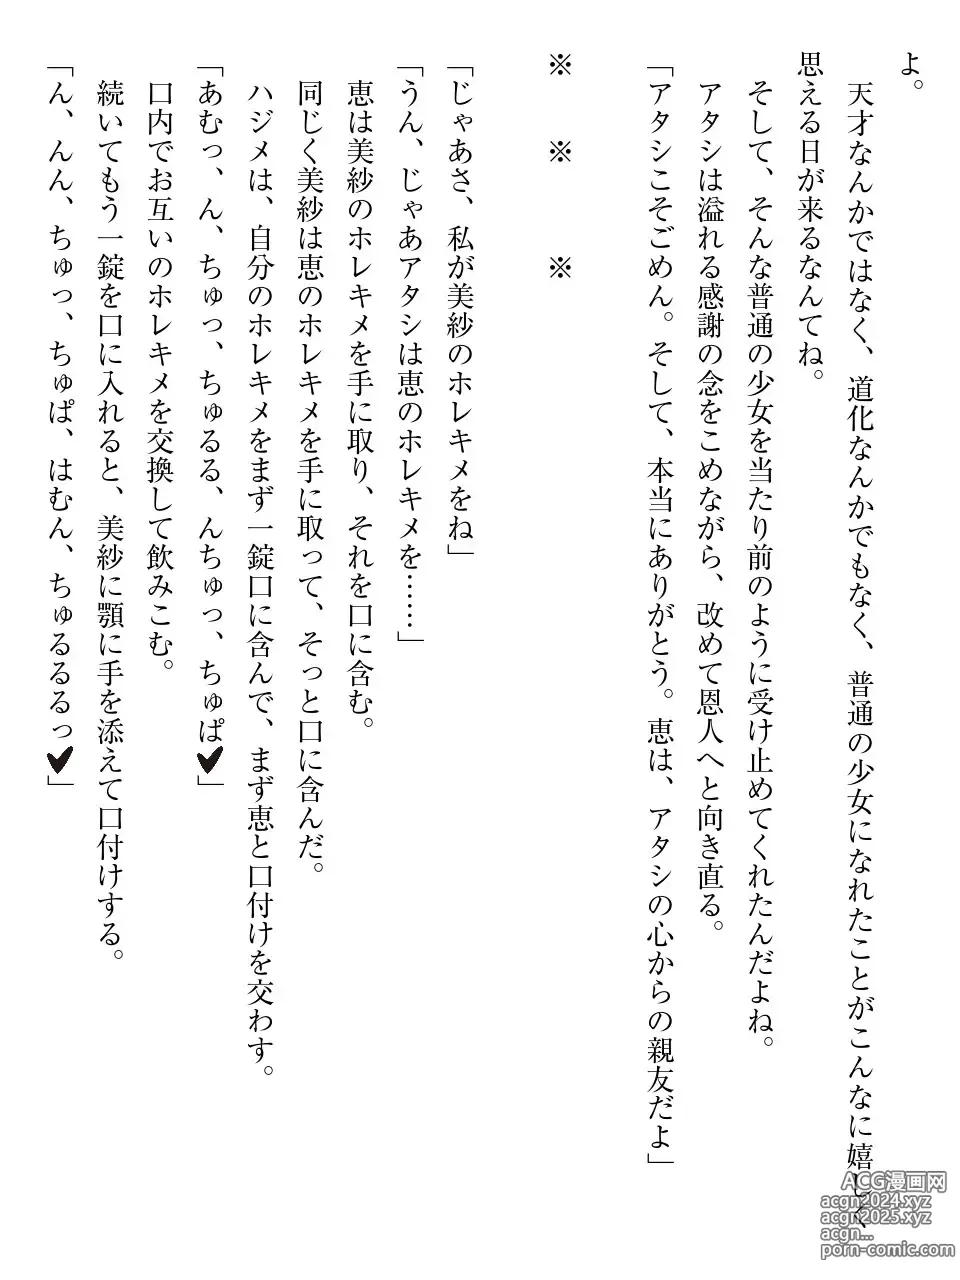 よ。
　天才なんかではなく、道化なんかでもなく、普通の少女になれたことがこんなに嬉しく
思える日が来るなんてね。
　そして、そんな普通の少女を当たり前のように受け止めてくれたんだよね。
　アタシは溢れる感謝の念をこめながら、改めて恩人へと向き直る。
「アタシこそごめん。そして、本当にありがとう。恵は、アタシの心からの親友だよ」
※　　※　　　※
「じゃあさ、私が美紗のホレキメをね」
「うん、じゃあアタシは恵のホレキメを……」
　恵は美紗のホレキメを手に取り、それを口に含む。
　同じく美紗は恵のホレキメを手に取って、そっと口に含んだ。
　ハジメは、自分のホレキメをまず一錠口に含んで、まず恵と口付けを交わす。
「あむっ、ん、ちゅっ、ちゅるる、んちゅっ、ちゅぱ♥」
　口内でお互いのホレキメを交換して飲みこむ。
　続いてもう一錠を口に入れると、美紗に顎に手を添えて口付けする。
「ん、んん、ちゅっ、ちゅぱ、はむん、ちゅるるるっ♥」
ACG漫画网
acgn2024.xyz
acgn2025.xyz
acgn...
porn-comic.com